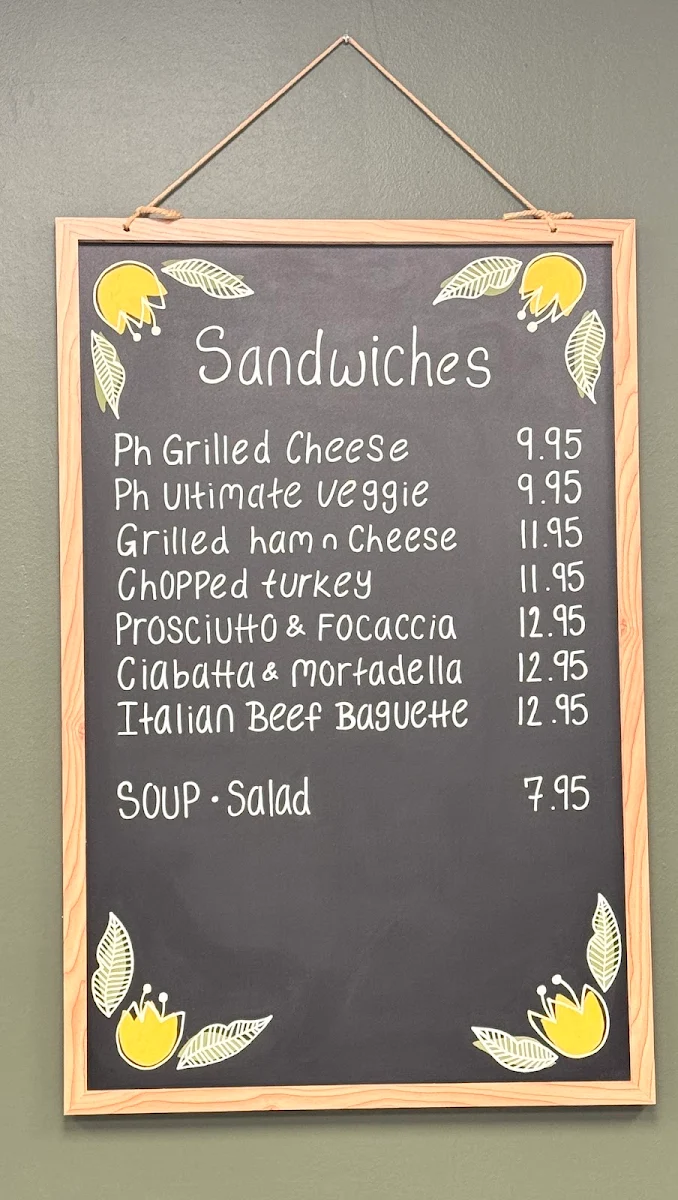 Sandwiches
Ph Grilled Cheese 9.95
Ph Ultimate veggie 9.95
Grilled ham n Cheese 11.95
Chopped turkey 11.95
Prosciutto & Focaccia 12.95
Ciabatta & mortadella 12.95
Italian Beef Baguette 12.95
SOUP · Salad 7.95